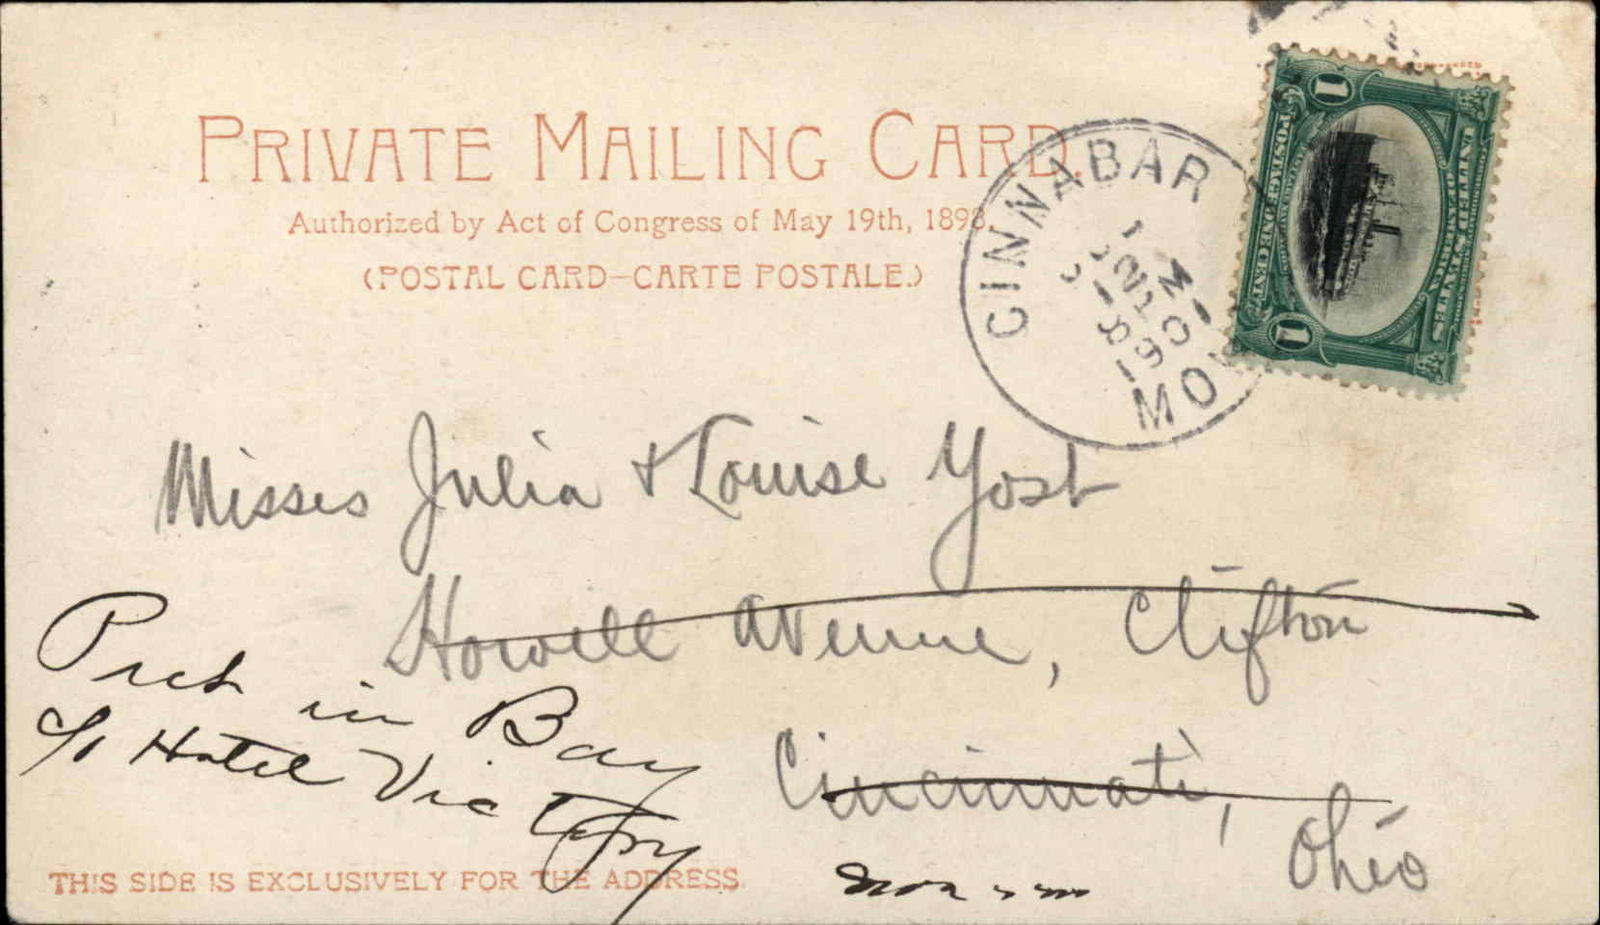 PRIVATE MAILING CARD.
Authorized by Act of Congress of May 19th, 1898.
(POSTAL CARD—CARTE POSTALE.)
CINNABAR
MO
1
UNITED STATES OF AMERICA
POSTAGE ONE CENT
1
Misses Julia & Louise Yost
Howell Avenue, Clifton
Cincinnati,
Ohio
Put in Bay
c/o Hotel Victory
THIS SIDE IS EXCLUSIVELY FOR THE ADDRESS.